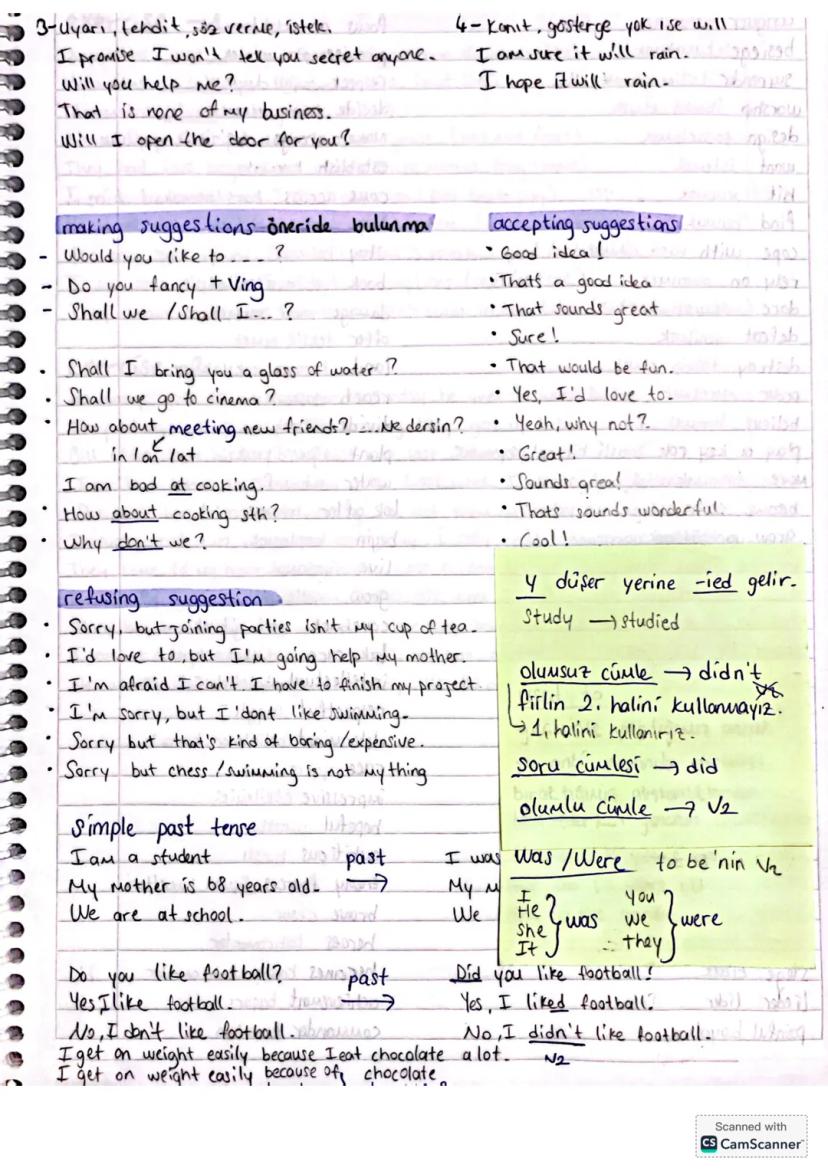 3-Uyarı, tehdit, söz verme, istek.
I promise I won't tell you secret anyone.
Will you help me?
That is none of my business.
Will I open the door for you?
4- Kanıt, gösterge yok ise will
I am sure it will rain.
I hope it will rain.
making suggestions öneride bulunma
- Would you like to ..... ?
- Do you fancy + Ving
- Shall we / Shall I... ?
• Shall I bring you a glass of water?
• Shall we go to cinema?
• How about meeting new friends? ....Ne dersin?
in / on / at
I am bad at cooking.
• How about cooking sth?
• Why don't we?
accepting suggestions
• Good idea!
• Thats a good idea
• That sounds great
• Sure!
• That would be fun.
• Yes, I'd love to.
• Yeah, why not?
• Great!
• Sounds grea!
• Thats sounds wonderful.
• Cool!
refusing suggestion
• Sorry, but joining parties isn't my cup of tea.
• I'd love to, but I'm going help my mother.
• I'm afraid I can't. I have to finish my project
• I'm sorry, but I 'dont like swimming.
• Sorry but that's kind of boring /expensive.
• Sorry but chess / swimming is not my thing
Y düşer yerine -ied gelir.
Study → studied
olumsuz cümle → didn't
fiilin 2. halini kullanmayız.
V2
→ 1. halini kullanırız.
soru cümlesi → did
olumlu cümle → V2
Was / Were to be'nin V2
I
He
She
It
was
you
we
they
were
Simple past tense
I am a student past → I was
My mother is 68 years old. My m
We are at school. We
Do you like football? past → Did you like football!
Yes I like football. Yes, I liked football.
No, I don't like football. No, I didn't like football.
V2
I get on weight easily because I eat chocolate a lot.
I get on weight easily because of chocolate
Scanned with
CS CamScanner